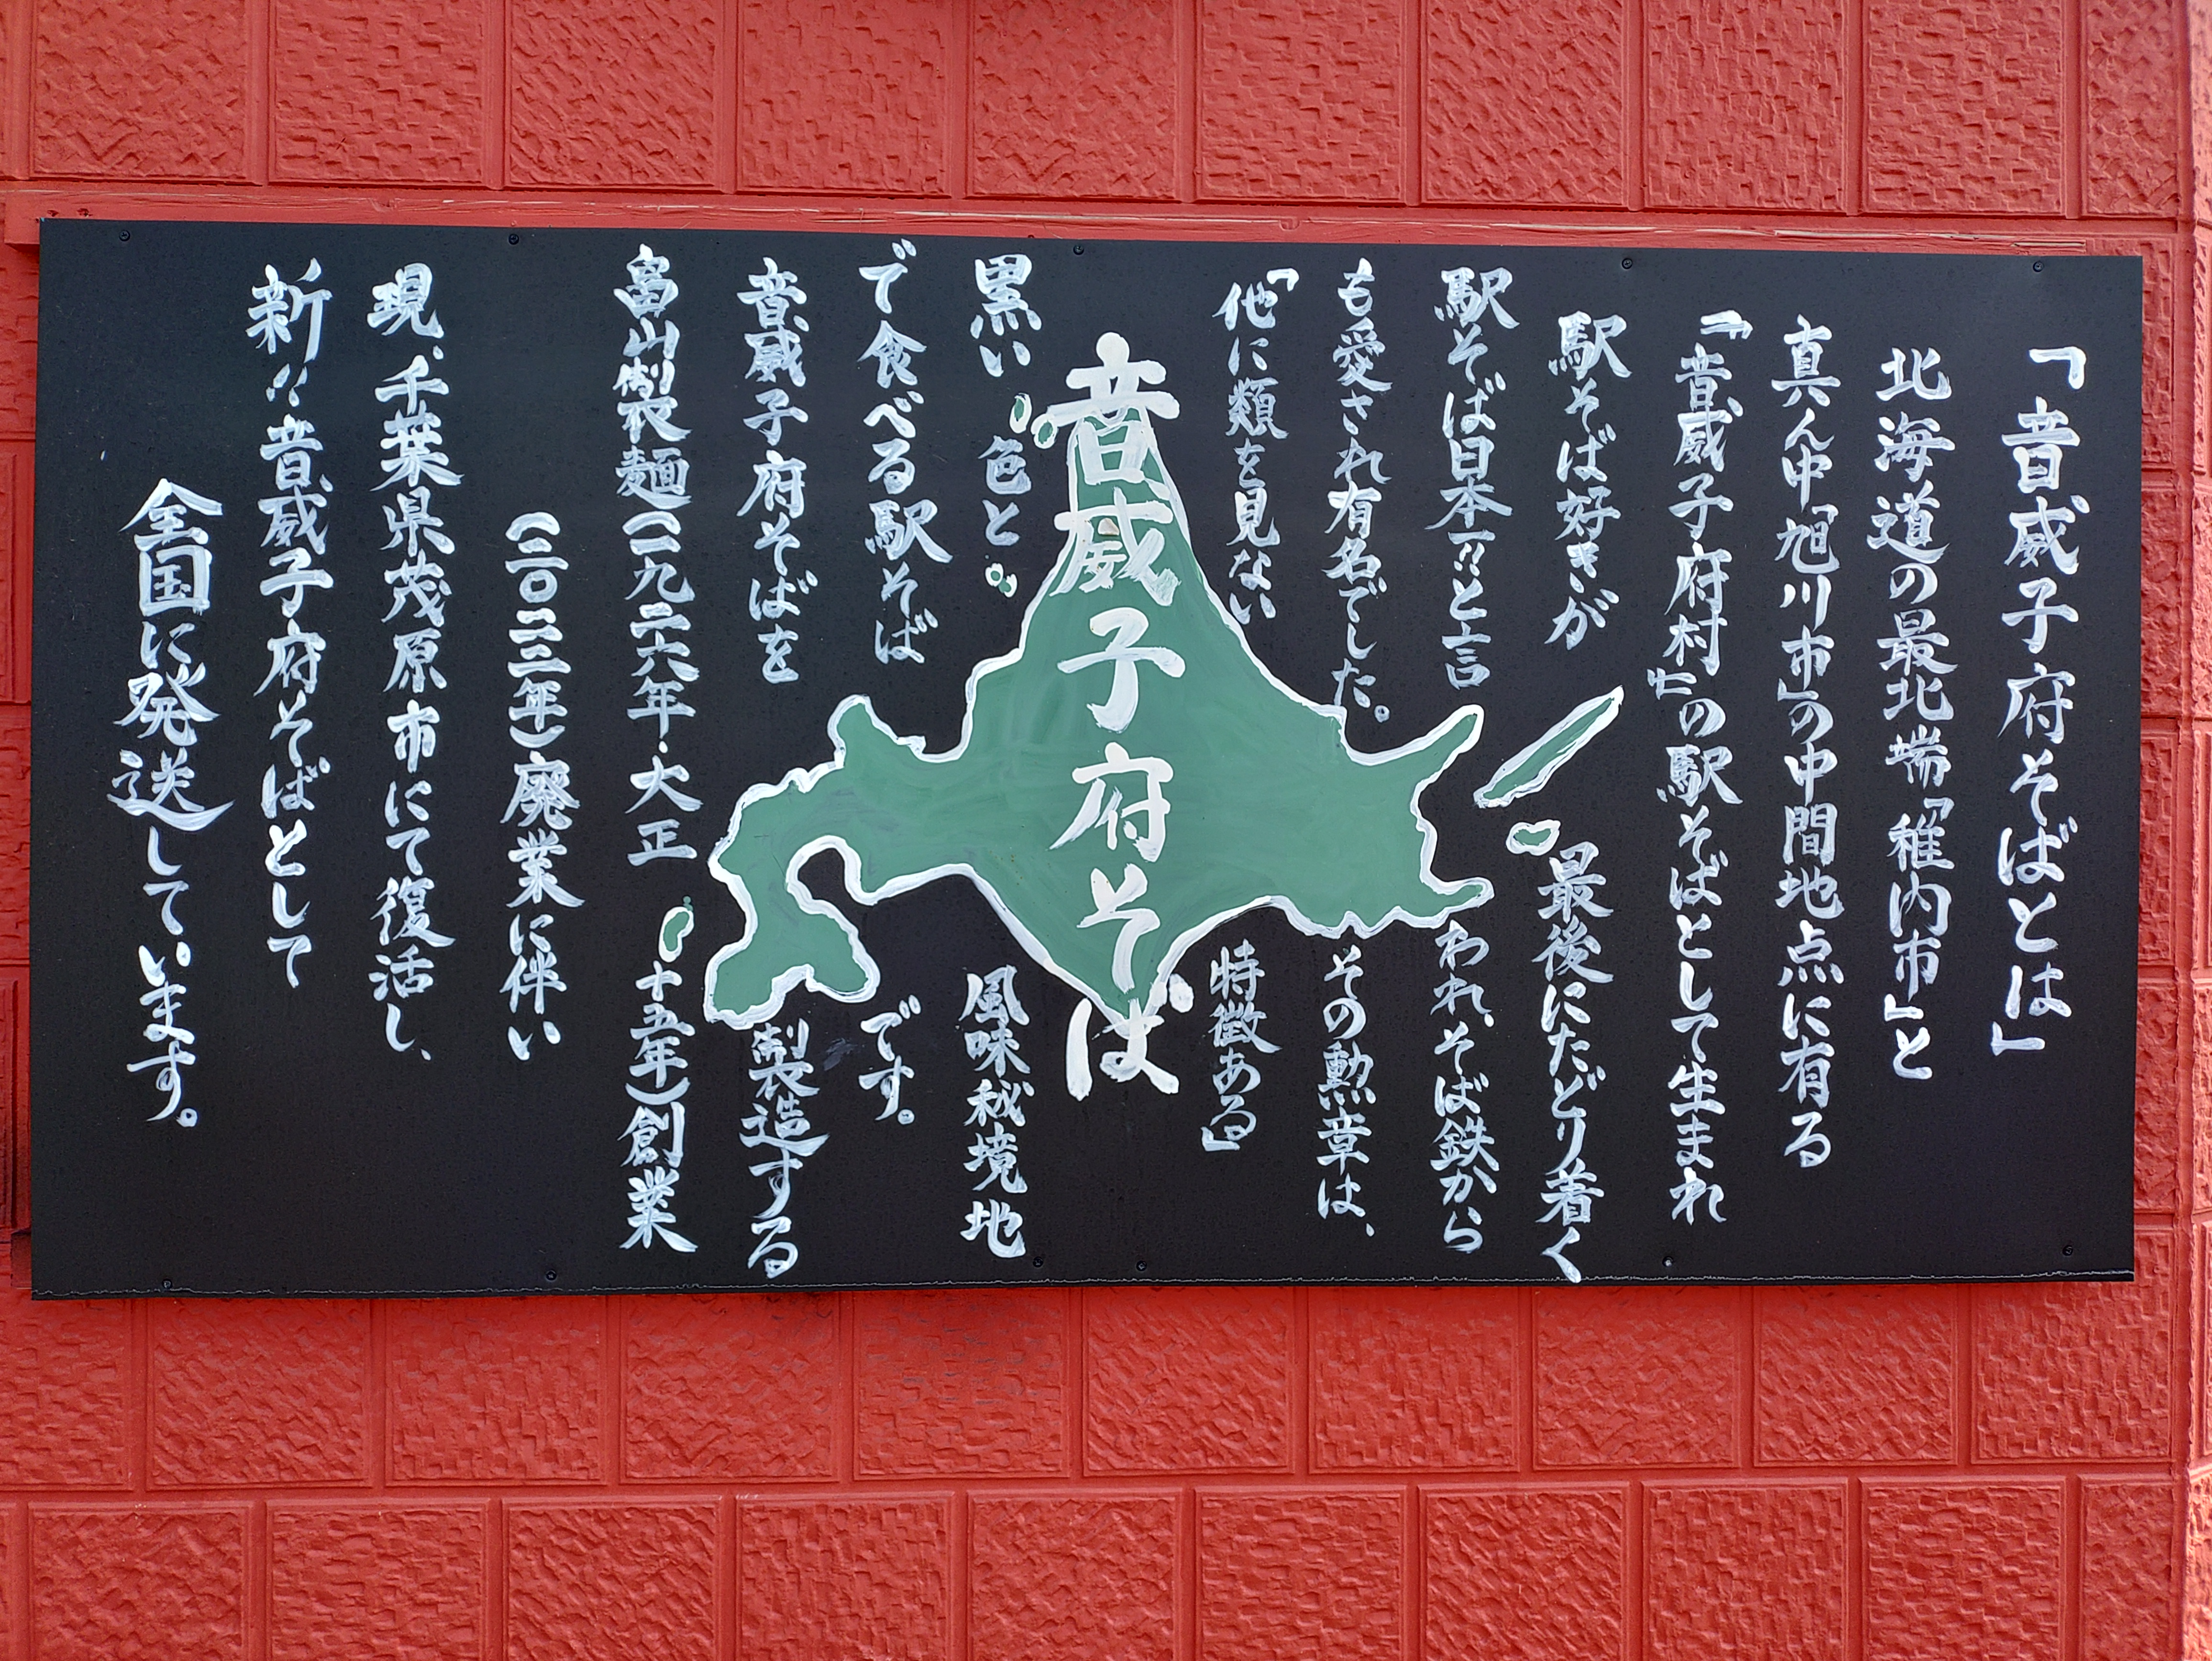 「音威子府そばとは」
北海道の最北端「稚内市」と
真ん中「旭川市」の中間地点に有る
『音威子府村』の駅そばとして生まれ
駅そば好きが最後にたどり着く
駅そば日本一!!と言われ、そば鉄から
も愛され有名でした。その勲章は、
「他に類を見ない特徴ある」
音威子府そば
黒い色と風味秘境地
で食べる駅そばです。
音威子府そばを製造する
畠山製麺(一九二六年・大正十五年)創業
(二〇二二年)廃業に伴い
現、千葉県茂原市にて復活し、
新!!音威子府そばとして
全国に発送しています。